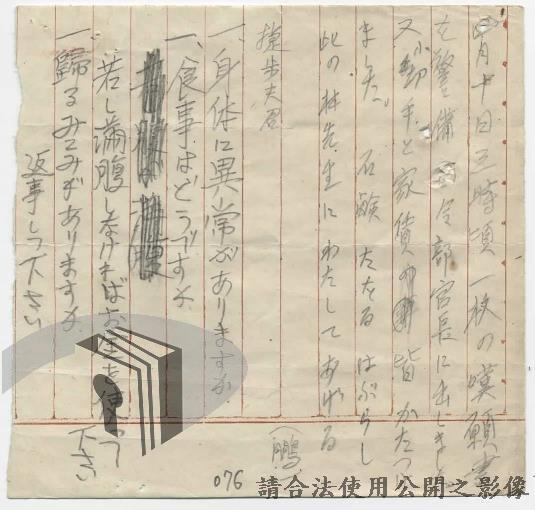 四月十日三時頃一枚の嘆願書
を警備司令部官長に出しました
又動手と家賃の皆かたつ
ました。石鹸たをるはぶらし
此の林先生にわたしてあげる
楚歩夫君
一、身体に異常がありますか
一、食事はどうですか
若し満腹しなければお金を使って下さい
一、歸るみこみがありますか
返事して下さい
(鵬)
076
請合法使用公開之影像